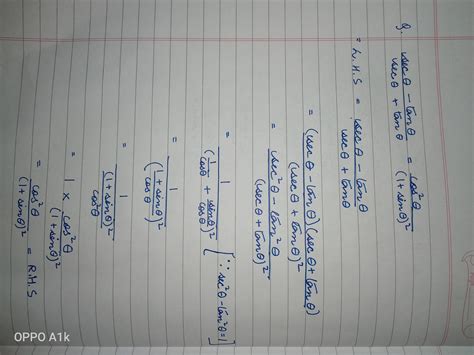 Q. (secθ - tanθ)/(secθ + tanθ) = cos²θ/(1+sinθ)²
= L.H.S = (secθ - tanθ)/(secθ + tanθ)
= (secθ - tanθ)(secθ + tanθ)/(secθ + tanθ)²
= (sec²θ - tan²θ)/(secθ + tanθ)²
= 1/(1/cosθ + sinθ/cosθ)² [∵ sec²θ - tan²θ = 1]
= 1/((1+sinθ)/cosθ)²
= 1/((1+sinθ)²/cosθ)
= 1 × cos²θ/(1+sinθ)²
= cos²θ/(1+sinθ)² = R.H.S
OPPO A1k